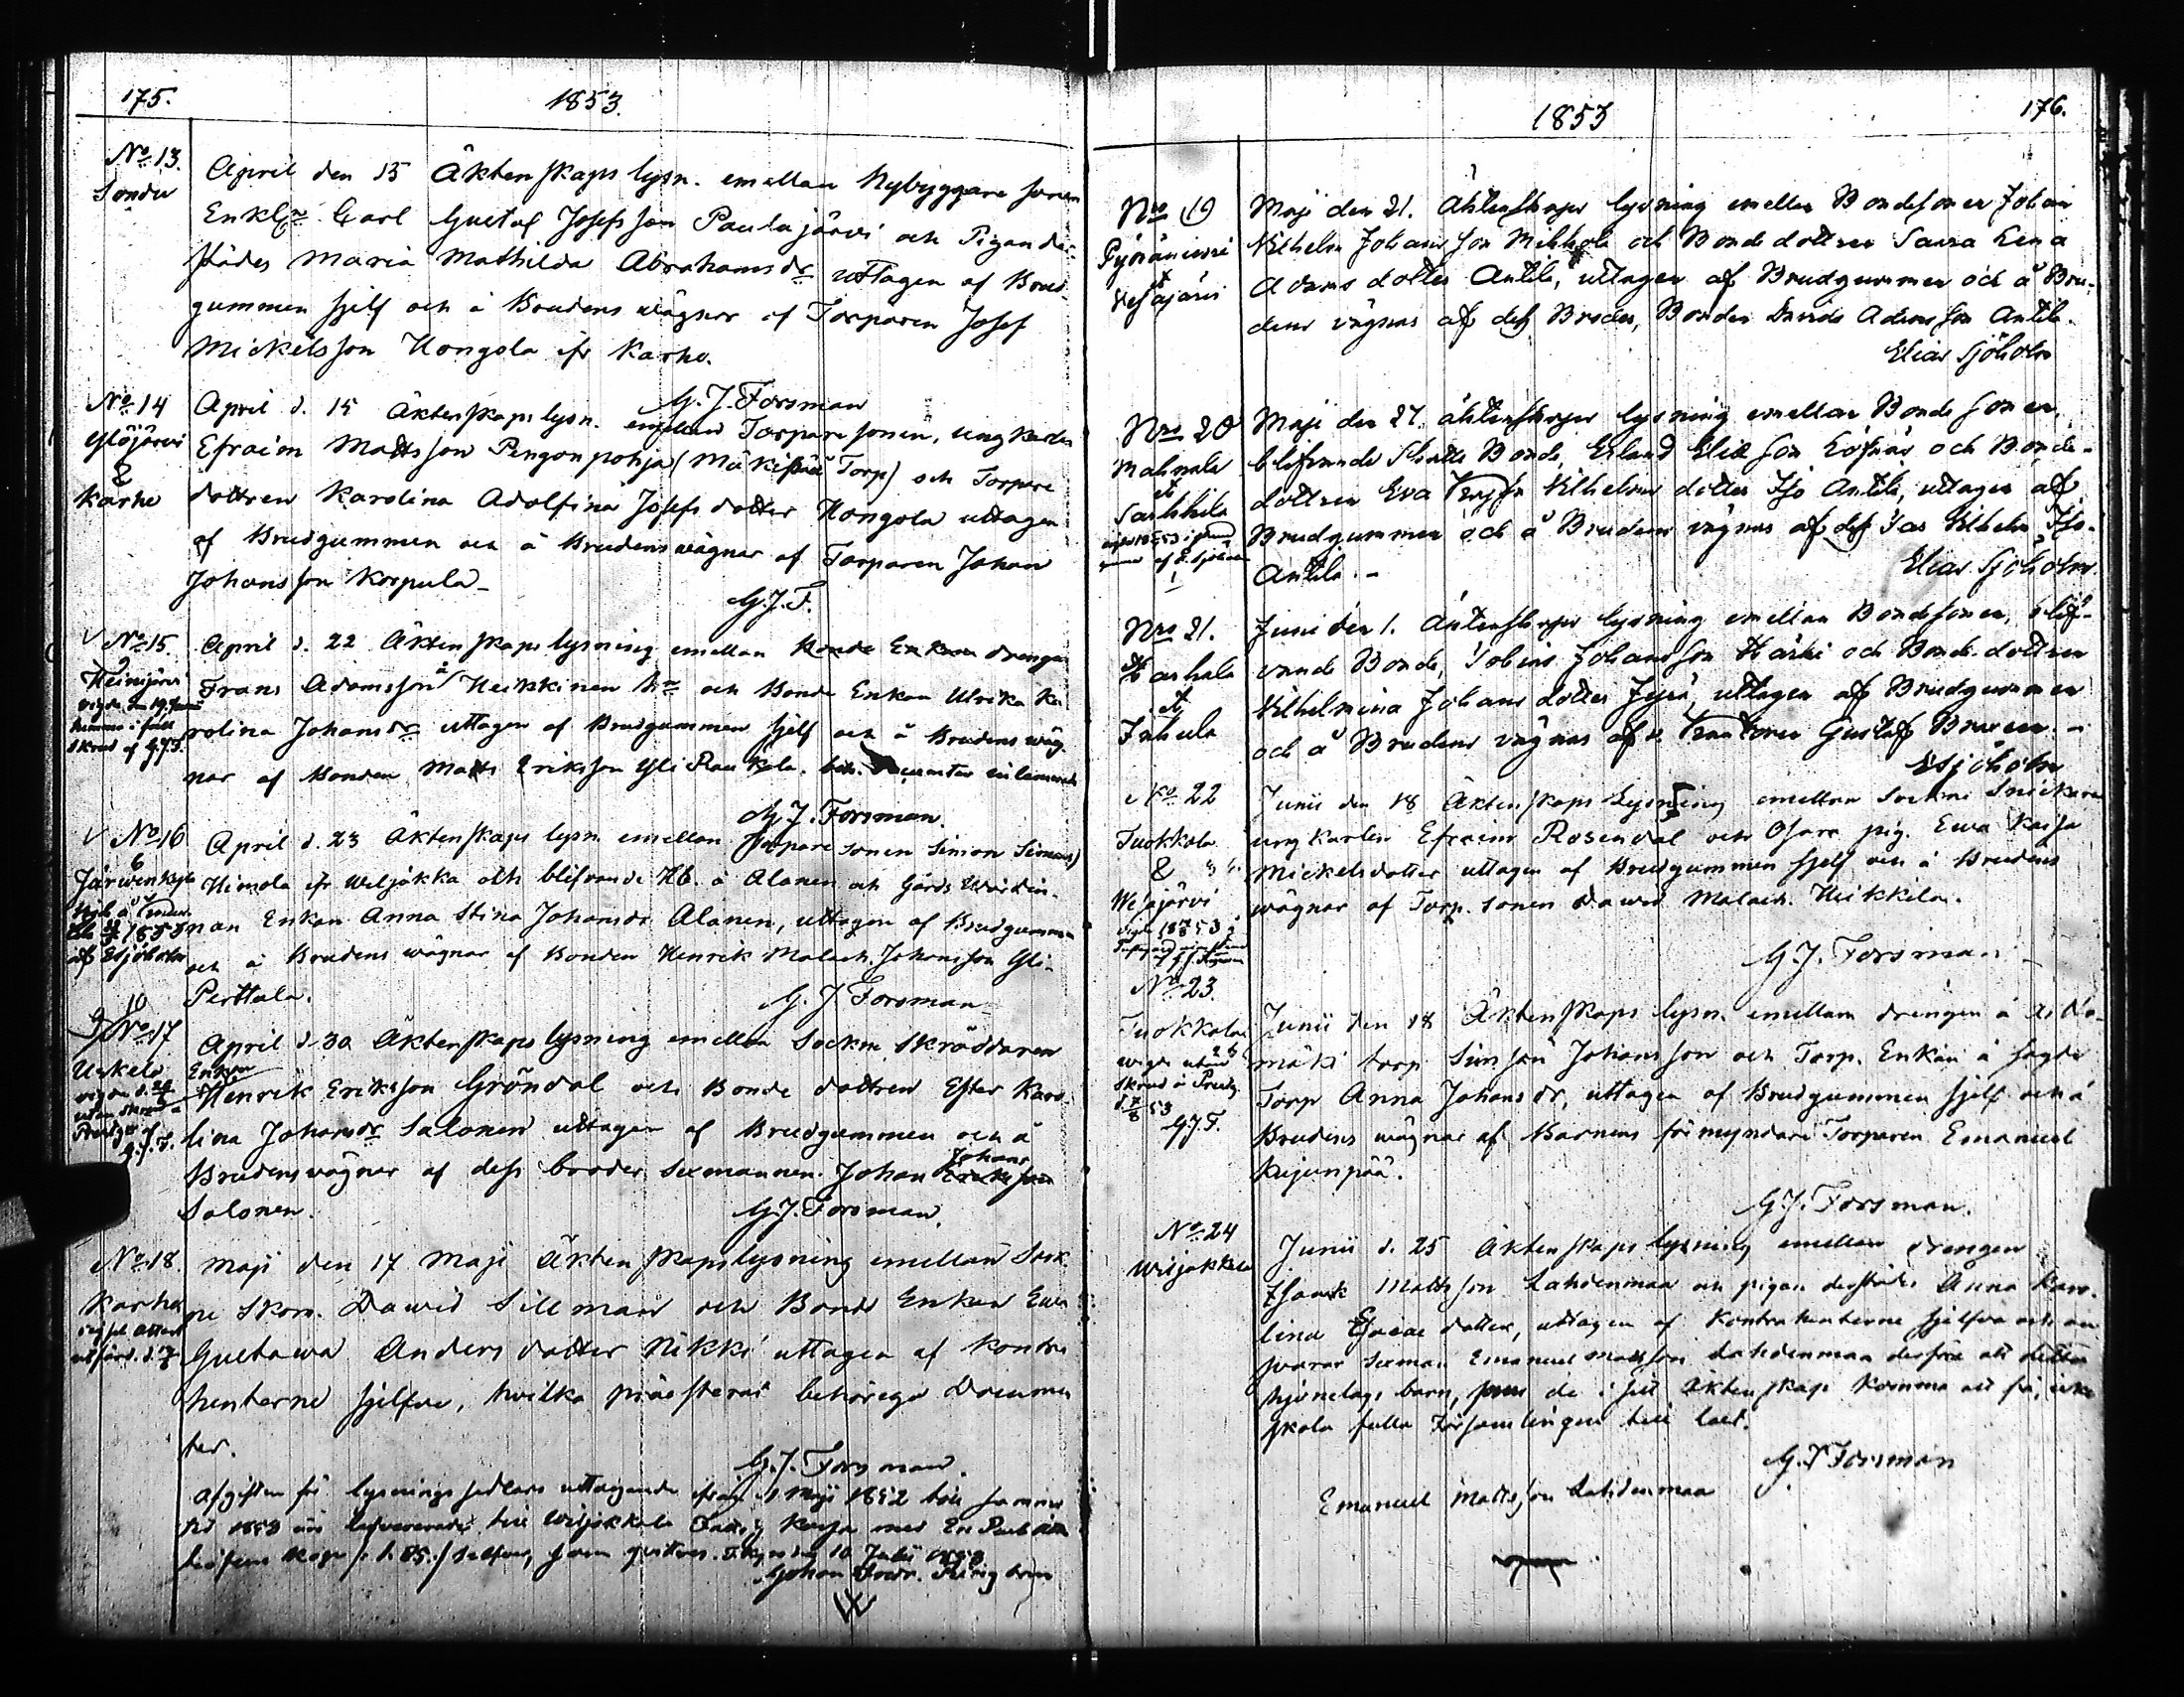 175.
1853.
No 13.
Sondu
April den 15 Äktenskaps lysn. emellan Nybyggare sonen
Enkl. Carl Gustaf Josefsson Paulajärvi och Pigan der-
städes Maria Mathilda Abrahamsdr uttagen af Brud-
gummen sjelf och å Brudens wägnar af Torparen Josef
Mickelsson Hongola ifr Karhe.
G. J. Forsman
No 14
Ylöjärvi
&
Karhe
April d. 15 Äktenskaps lysn. emellan Torpare sonen, ung karlen
Efraim Mattsson Pengonpohja (Mäkipää Torp) och Torpare
dottren Karolina Adolfina Josefs dotter Hongola uttagen
af Brudgummen och å Brudens wägnar af Torparen Johan
Johansson Korpula
G. J. F.
No 15.
Heinijärvi
April d. 22 Äktenskaps lysning emellan Bonde Enkan drengen
Frans Adamsson å Heikkinen och Bonde Enkan Ulrika Ka-
rolina Johansdr uttagen af Brudgummen sjelf och å Brudens wäg-
nar af Bonden Matts Eriksson Yli
G. J. Forsman.
No 16
6
Järwenkylä
1853
af ESjöholm
April d. 23 Äktenskaps lysn. emellan Torpare sonen Simon Simons)
Himola ifr Wiljakka och blifvande Hb. å Alanen och Gårds Wärdin-
nan Enkan Anna Stina Johansdr Alanen, uttagen af Brudgummen
och å Brudens wägnar af Bonden Henrik Malach. Johansson Yli-
Perttula.
G. J. Forsman
10
No 17
Uskela
G. J. F.
April d. 30 Äktenskaps lysning emellan Sockne Skräddaren
Enkl
Henrik Eriksson Gröndal och Bonde dottren Ester Karo-
lina Johansdr Salonen uttagen af Brudgummen och å
Brudens wägnar af dess broder Sexmannen Johan Johans Eriksson
Salonen.
G. J. Forsman.
No 18.
Karhe
Maji den 17 Maji Äktenskapslysning emellan Sock-
ne Skom. Dawid Sillman och Bonde Enkan Ewa
Gustawa Anders dotter Nikki uttagen af Kontra
henterne sjelfve, hvilka præsterat behöriga Documen
ter.
G. J. Forsman.
Afgiften för lysnings sedlars uttagande ifrån 1 Maji 1852 till samma
tid 1853 äro till Wiljakkala Fattig Kassa med En Rub
Silfver, som qvitteras. 10 Julii 1853
Johan
1853
176.
Nro 19
et
Vesajärvi
Maji den 21. Äktenskaps lysning emellan Bondesonen Johan
Vilhelm Johansson Mikkola och Bonde dottren Saara Lena
Adams dotter Antila, uttagen af Brudgummen och å Bru-
dens vägnar af dess Broder, Bonden David Adamsson Antila.
Elias Sjöholm
Nro 20
Mahnala
et
Sarkkila
Maji den 27. äktenskaps lysning emellan Bonde sonen,
blifvande Skatte Bonde, Erland Eliæ son Löfnäs och Bonde-
dottren Eva Vilhelms dotter Iso Antila, uttagen af
Brudgummen och å Brudens vägnar af dess Far Vilhelm Iso-
Antila.
Elias Sjöholm.
Nro 21.
et
Juni den 1. äktenskaps lysning emellan Bondesonen, blif-
vande Bonde, Tobias Johansson Härki och Bonde dottren
Vilhelmina Johans dotter Jyrä, uttagen af Brudgummen
och å Brudens vägnar af Gustaf
ESjöholm
No 22
Tuokkola
&
Wesajärvi
Junii den 18 Äktenskaps Lysning emellan Sockne Snickaren
ung karlen Efraim Rosendal och Osara pig. Ewa Kaisa
Mickelsdotter uttagen af Brudgummen sjelf och å Brudens
wägnar af Torp. sonen Dawid Malach. Heikkila.
G. J. Forsman.
No 23.
Tuokkola
53
G. J. F.
Junii den 18 Äktenskaps lysn. emellan drengen å
mäki torp Johansson och Torp. Enkan å sagde
Torp Anna Johans dr, uttagen af Brudgummen sjelf och å
Brudens wägnar af Barnens förmyndare Torparen Emanuel
Kujunpää.
G. J. Forsman.
No 24
Wiljakkala
Junii d. 25 Äktenskaps lysning emellan drengen
Isaak Mattsson Lahdenmaa och pigan derstädes Anna Karo-
lina Esaiæ dotter, uttagen af Kontrahenterne sjelfva och an
svarar Sexman Emanuel Mattsson Lahdenmaa derföre att detta
hjonelags barn, som de i sitt äktenskap komma att få, icke
skola falla Församlingen till last.
G. J. Forsman
Emanuel Mattsson Lahdenmaa